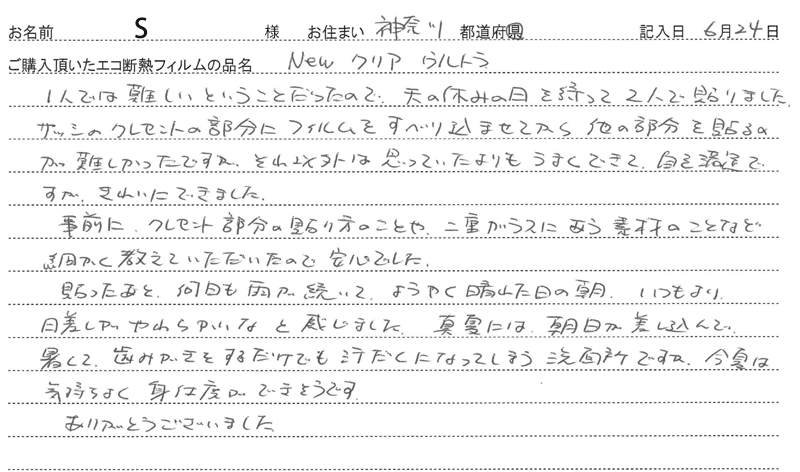 お名前 S 様 お住まい 神奈川 都道府県 記入日 6月24日
ご購入頂いたエコ断熱フィルムの品名 New クリア ウルトラ
1人では難しいということだったので、夫の休みの日を待って2人で貼りました。
サッシのクレセントの部分にフィルムをすべり込ませてから他の部分を貼るの
が難しかったですが、それ以外は思っていたよりもうまくできて、自己満足で
すが、きれいにできました。
事前に、クレセント部分の貼り方のことや、二重ガラスにあう素材のことなど
細かく教えていただいたので安心でした。
貼ったあと、何日も雨が続いて、ようやく晴れた日の朝、いつもより
日差しがやわらかいなと感じました。真夏には、朝日が差し込んで、
暑くて、歯みがきをするだけでも汗だくになってしまう洗面所ですが、今夏は
気持ちよく身仕度ができそうです。
ありがとうございました